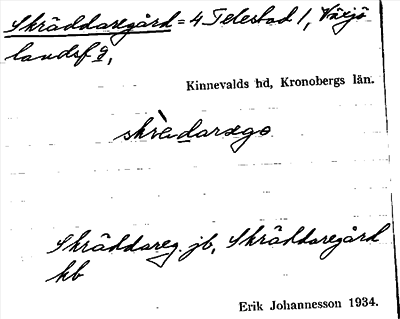 Skräddaregård = 4 Telestad 1, Växjö
landsf g,
Kinnevalds hd, Kronobergs län.
skrèdarego
Skräddareg. jb, Skräddaregård
kb
Erik Johannesson 1934.